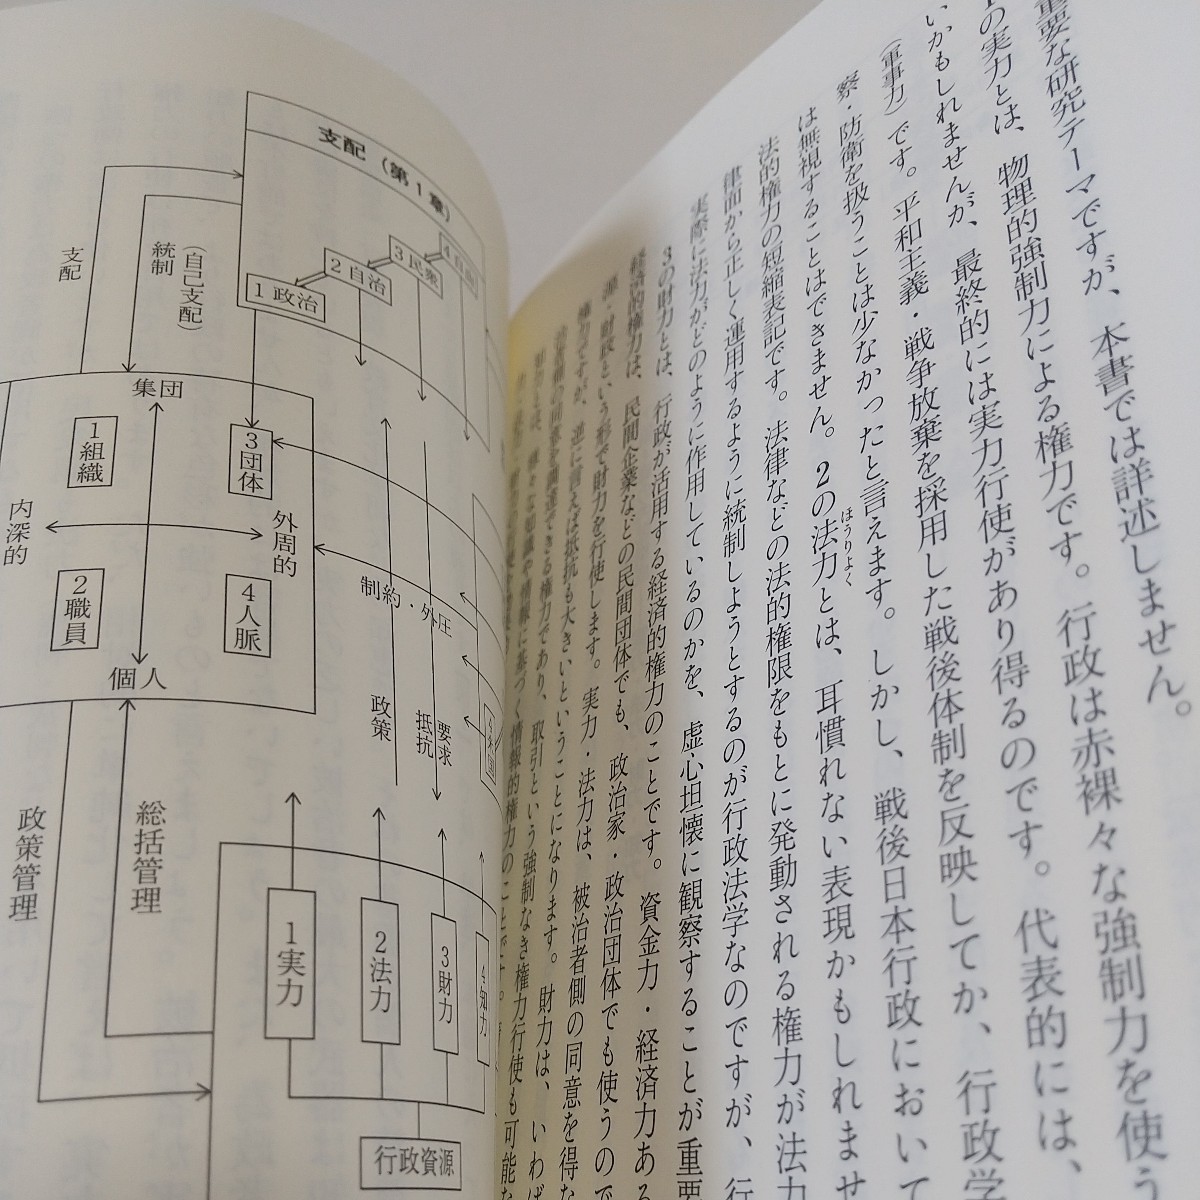 支配（第1章）
4自由
3民衆
2自治
1政治
支配
統制
（自己支配）
集団
1組織
3団体
内深的
外周的
2職員
4人脈
個人
制約・外圧
政策
要求
抵抗
政策管理
総括管理
1実力
2法力
3財力
4知力
行政資源
重要な研究テーマですが、本書では詳述しません。
1の実力とは、物理的強制力による権力です。行政は赤裸々な強制力を使う
いかもしれませんが、最終的には実力行使があり得るのです。代表的には、
（軍事力）です。平和主義・戦争放棄を採用した戦後体制を反映してか、行政学
察・防衛を扱うことは少なかったと言えます。しかし、戦後日本行政において
は無視することはできません。2の法力とは、耳慣れない表現かもしれませ
ほうりよく
法的権力の短縮表記です。法律などの法的権限をもとに発動される権力が法力
律面から正しく運用するように統制しようとするのが行政法学なのですが、行
実際に法力がどのように作用しているのかを、虚心坦懐に観察することが重要
3の財力とは、行政が活用する経済的権力のことです。資金力・経済力ある
経済的権力は、民間企業などの民間団体でも、政治家・政治団体でも使うので
源・財政という形で財力を行使します。実力・法力は、被治者側の同意を得な
権力ですが、逆に言えば抵抗も大きいということになります。財力は、いわば
治者側の同意を調達できる権力であり、取引という強制なき権力行使も可能な
知力とは、様々な知識や情報に基づく情報的権力のことです。